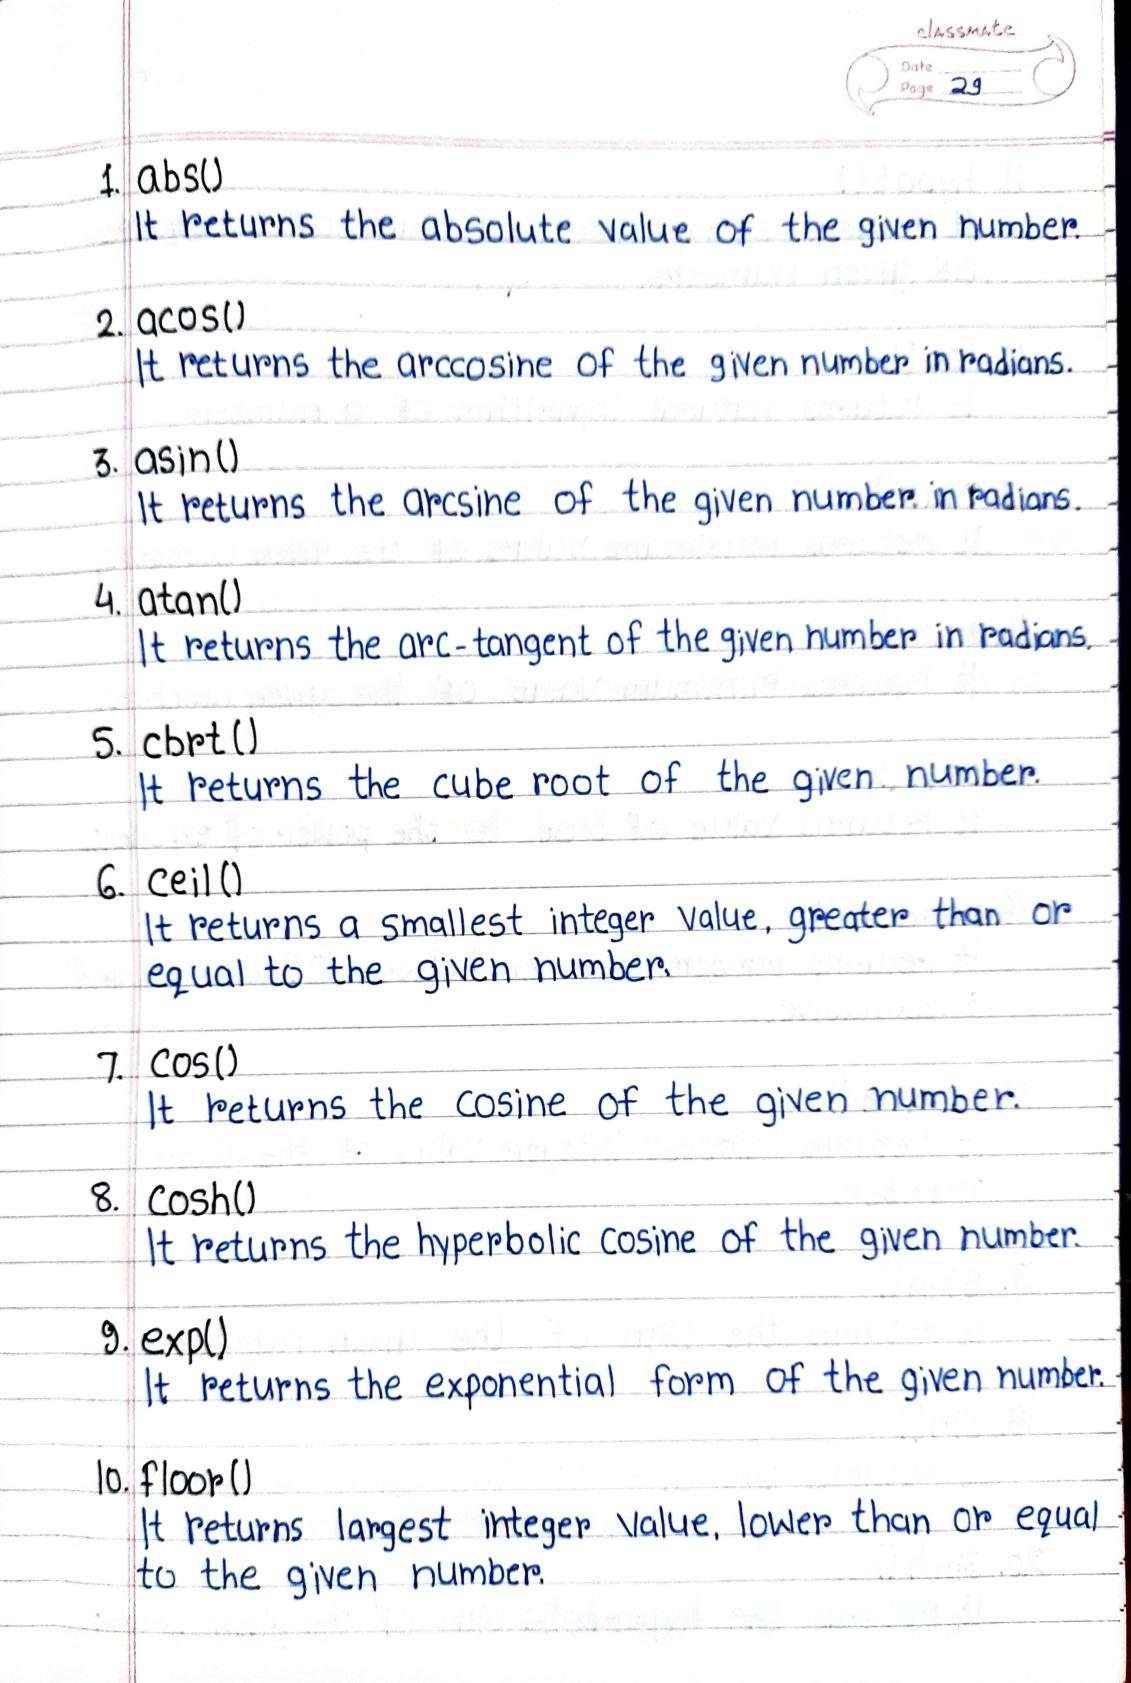 classmate
Date
Page 29
1. abs()
It returns the absolute value of the given number.
2. acos()
It returns the arccosine of the given number in radians.
3. asin()
It returns the arcsine of the given number in radians.
4. atan()
It returns the arc-tangent of the given number in radians.
5. cbrt()
It returns the cube root of the given number.
6. ceil()
It returns a smallest integer value, greater than or
equal to the given number.
7. cos()
It returns the cosine of the given number.
8. cosh()
It returns the hyperbolic cosine of the given number.
9. exp()
It returns the exponential form of the given number.
10. floor()
It returns largest integer value, lower than or equal
to the given number.